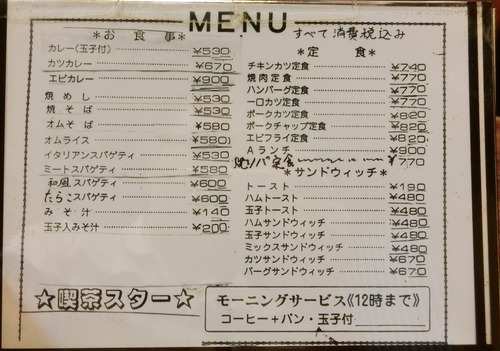 MENU
すべて消費税込み
*お食事*
カレー(玉子付) ¥530
カツカレー ¥670
エビカレー ¥900
焼めし ¥530
焼そば ¥530
オムそば ¥580
オムライス ¥580
イタリアンスパゲティ ¥530
ミートスパゲティ ¥580
和風スパゲティ ¥600
たらこスパゲティ ¥600
みそ汁 ¥140
玉子入みそ汁 ¥200
☆喫茶スター☆
*定食*
チキンカツ定食 ¥740
焼肉定食 ¥770
ハンバーグ定食 ¥770
一口カツ定食 ¥770
ポークカツ定食 ¥820
ポークチャップ定食 ¥820
エビフライ定食 ¥820
Aランチ ¥900
焼ソバ定食 ¥770
*サンドウィッチ*
トースト ¥190
ハムトースト ¥480
玉子トースト ¥480
ハムサンドウィッチ ¥480
玉子サンドウィッチ ¥480
ミックスサンドウィッチ ¥480
カツサンドウィッチ ¥670
バーグサンドウィッチ ¥670
モーニングサービス《12時まで》
コーヒー+パン・玉子付